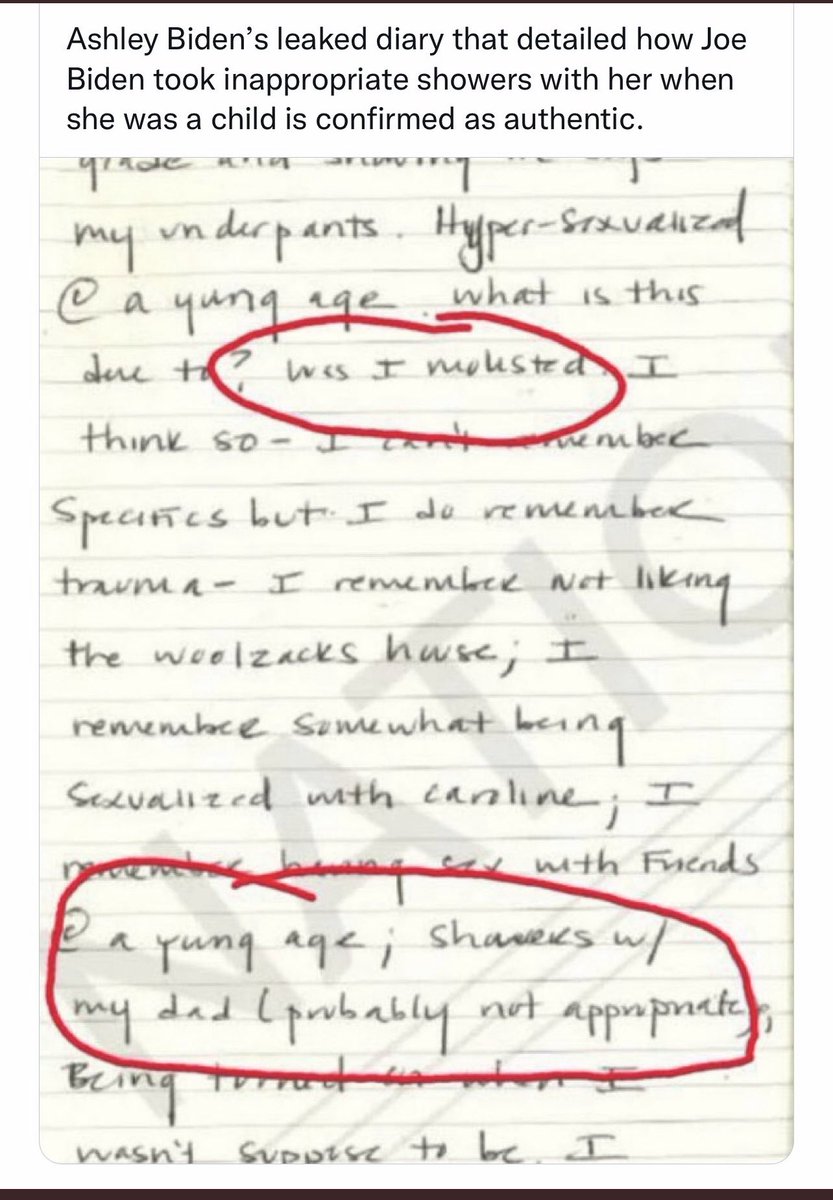 Ashley Biden’s leaked diary that detailed how Joe
Biden took inappropriate showers with her when
she was a child is confirmed as authentic.
my underpants. Hyper-sexualized
@ a yung age. what is this
due to? Was I molested. I
think so - I can't remember
specifics but I do remember
trauma - I remember not liking
the woolzacks house; I
remember somewhat being
sexualized with caroline; I
remember having sex with Friends
@ a yung age; showers w/
my dad (probably not appropriate),
Being turned on when I
wasn't suppose to be. I
NATIO